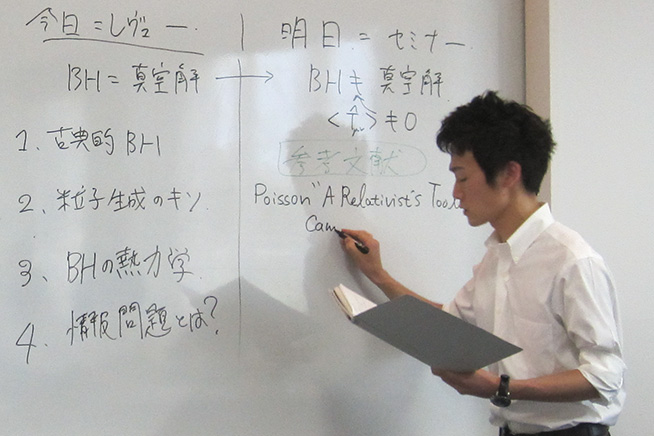 今日 = レヴュー.
BH = 真空解 →
1. 古典的 BH
2. 粒子生成のキソ.
3. BHの熱力学.
4. 情報問題とは?
明日 = セミナー.
BH ≠ 真空解.
< T̂μν > ≠ 0
参考文献
Poisson "A Relativist's Tool
Cam